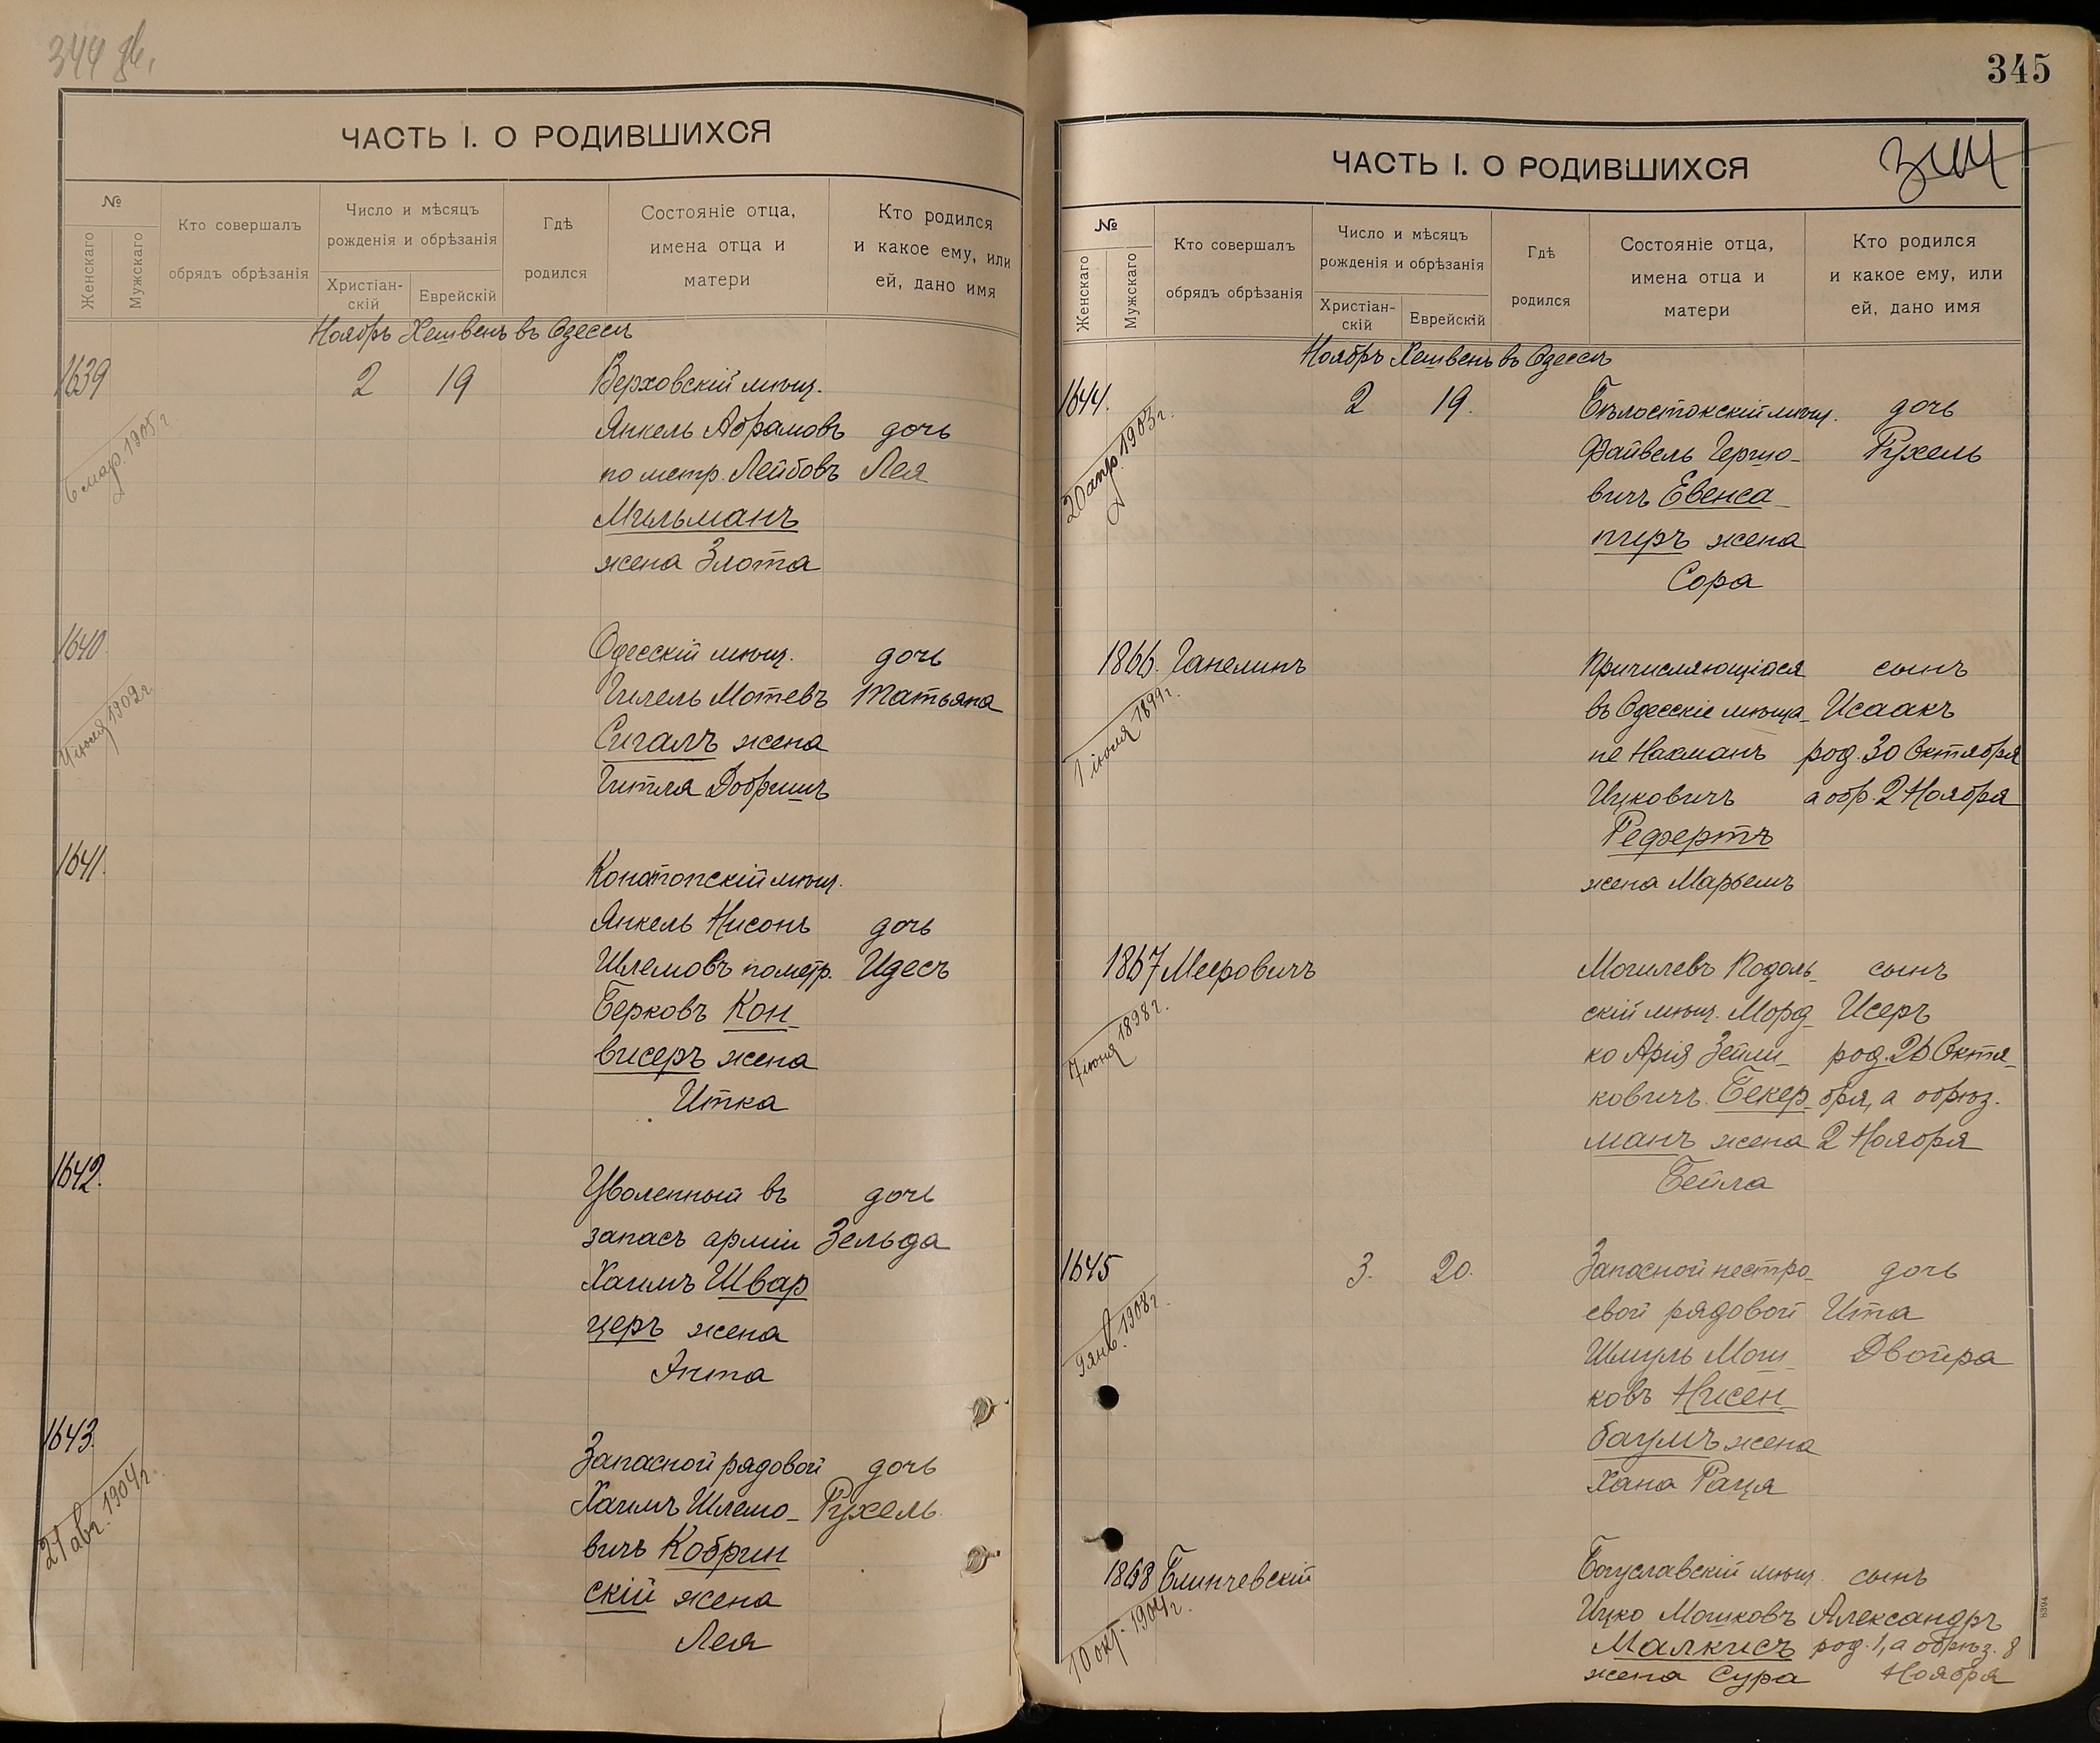 344 об.
ЧАСТЬ I. О РОДИВШИХСЯ
№
Женскаго
Мужскаго
Кто совершалъ
обрядъ обрѣзанія
Число и мѣсяцъ
рожденія и обрѣзанія
Христіан-
скій
Еврейскій
Гдѣ
родился
Состояніе отца,
имена отца и
матери
Кто родился
и какое ему, или
ей, дано имя
Ноябрь Хешвенъ въ Одессѣ
1639 2 19 Верховскій мѣщ.
Янкель Абрамовъ дочь
по метр. Лейбовъ Лея
Мильманъ
жена Злота
6 мар. 1905 г.
1640 Одесскій мѣщ. дочь
Гилель Мотевъ Татьяна
Сигалъ жена
Гитля Добришъ
4 июля 1902 г.
1641. Конотопскій мѣщ.
Янкель Нисонъ дочь
Шлемовъ по метр. Идесъ
Берковъ Кон-
висеръ жена
Итка
1642. Уволенный въ дочь
запасъ арміи Зельда
Хаимъ Швар
церъ жена
Энта
1643. Запасной рядовой дочь
Хаимъ Шлемо- Рухель
вичъ Кобрин
скій жена
Лея
21 авг. 1904 г.
345
ЧАСТЬ I. О РОДИВШИХСЯ
344
№
Женскаго
Мужскаго
Кто совершалъ
обрядъ обрѣзанія
Число и мѣсяцъ
рожденія и обрѣзанія
Христіан-
скій
Еврейскій
Гдѣ
родился
Состояніе отца,
имена отца и
матери
Кто родился
и какое ему, или
ей, дано имя
Ноябрь Хешвенъ въ Одессѣ
1644. 2 19. Бѣлостокскій мѣщ. дочь
Файвель Гершо- Рухель
вичъ Евенса-
пиръ жена
Сора
20 апр. 1903 г.
1866. Ганелинъ Причисляющійся сынъ
въ Одесскіе мѣща- Исаакъ
не Нахманъ род. 30 Октября
Ицковичъ а обр. 2 Ноября
Рефертъ
жена Марьемъ
1 іюля 1899 г.
1867 Мееровичъ Могилевъ Подоль- сынъ
скій мѣщ. Морд- Исеръ
ко Арія Зейли- род. 26 Октя-
ковичъ Бекер- бря, а обрѣз.
манъ жена 2 Ноября
Бейла
7 іюня 1898 г.
1645 3. 20. Запасной нестро- дочь
евой рядовой Ита
Шмуль Мош- Двойра
ковъ Нисен-
баумъ жена
Хана Раця
9 янв. 1908 г.
1868 Блинчевскій Богуславскій мѣщ. сынъ
Ицко Мошковъ Александръ
Малкисъ род. 1, а обрѣз. 8
жена Сура Ноября
10 окт. 1904 г.
8394